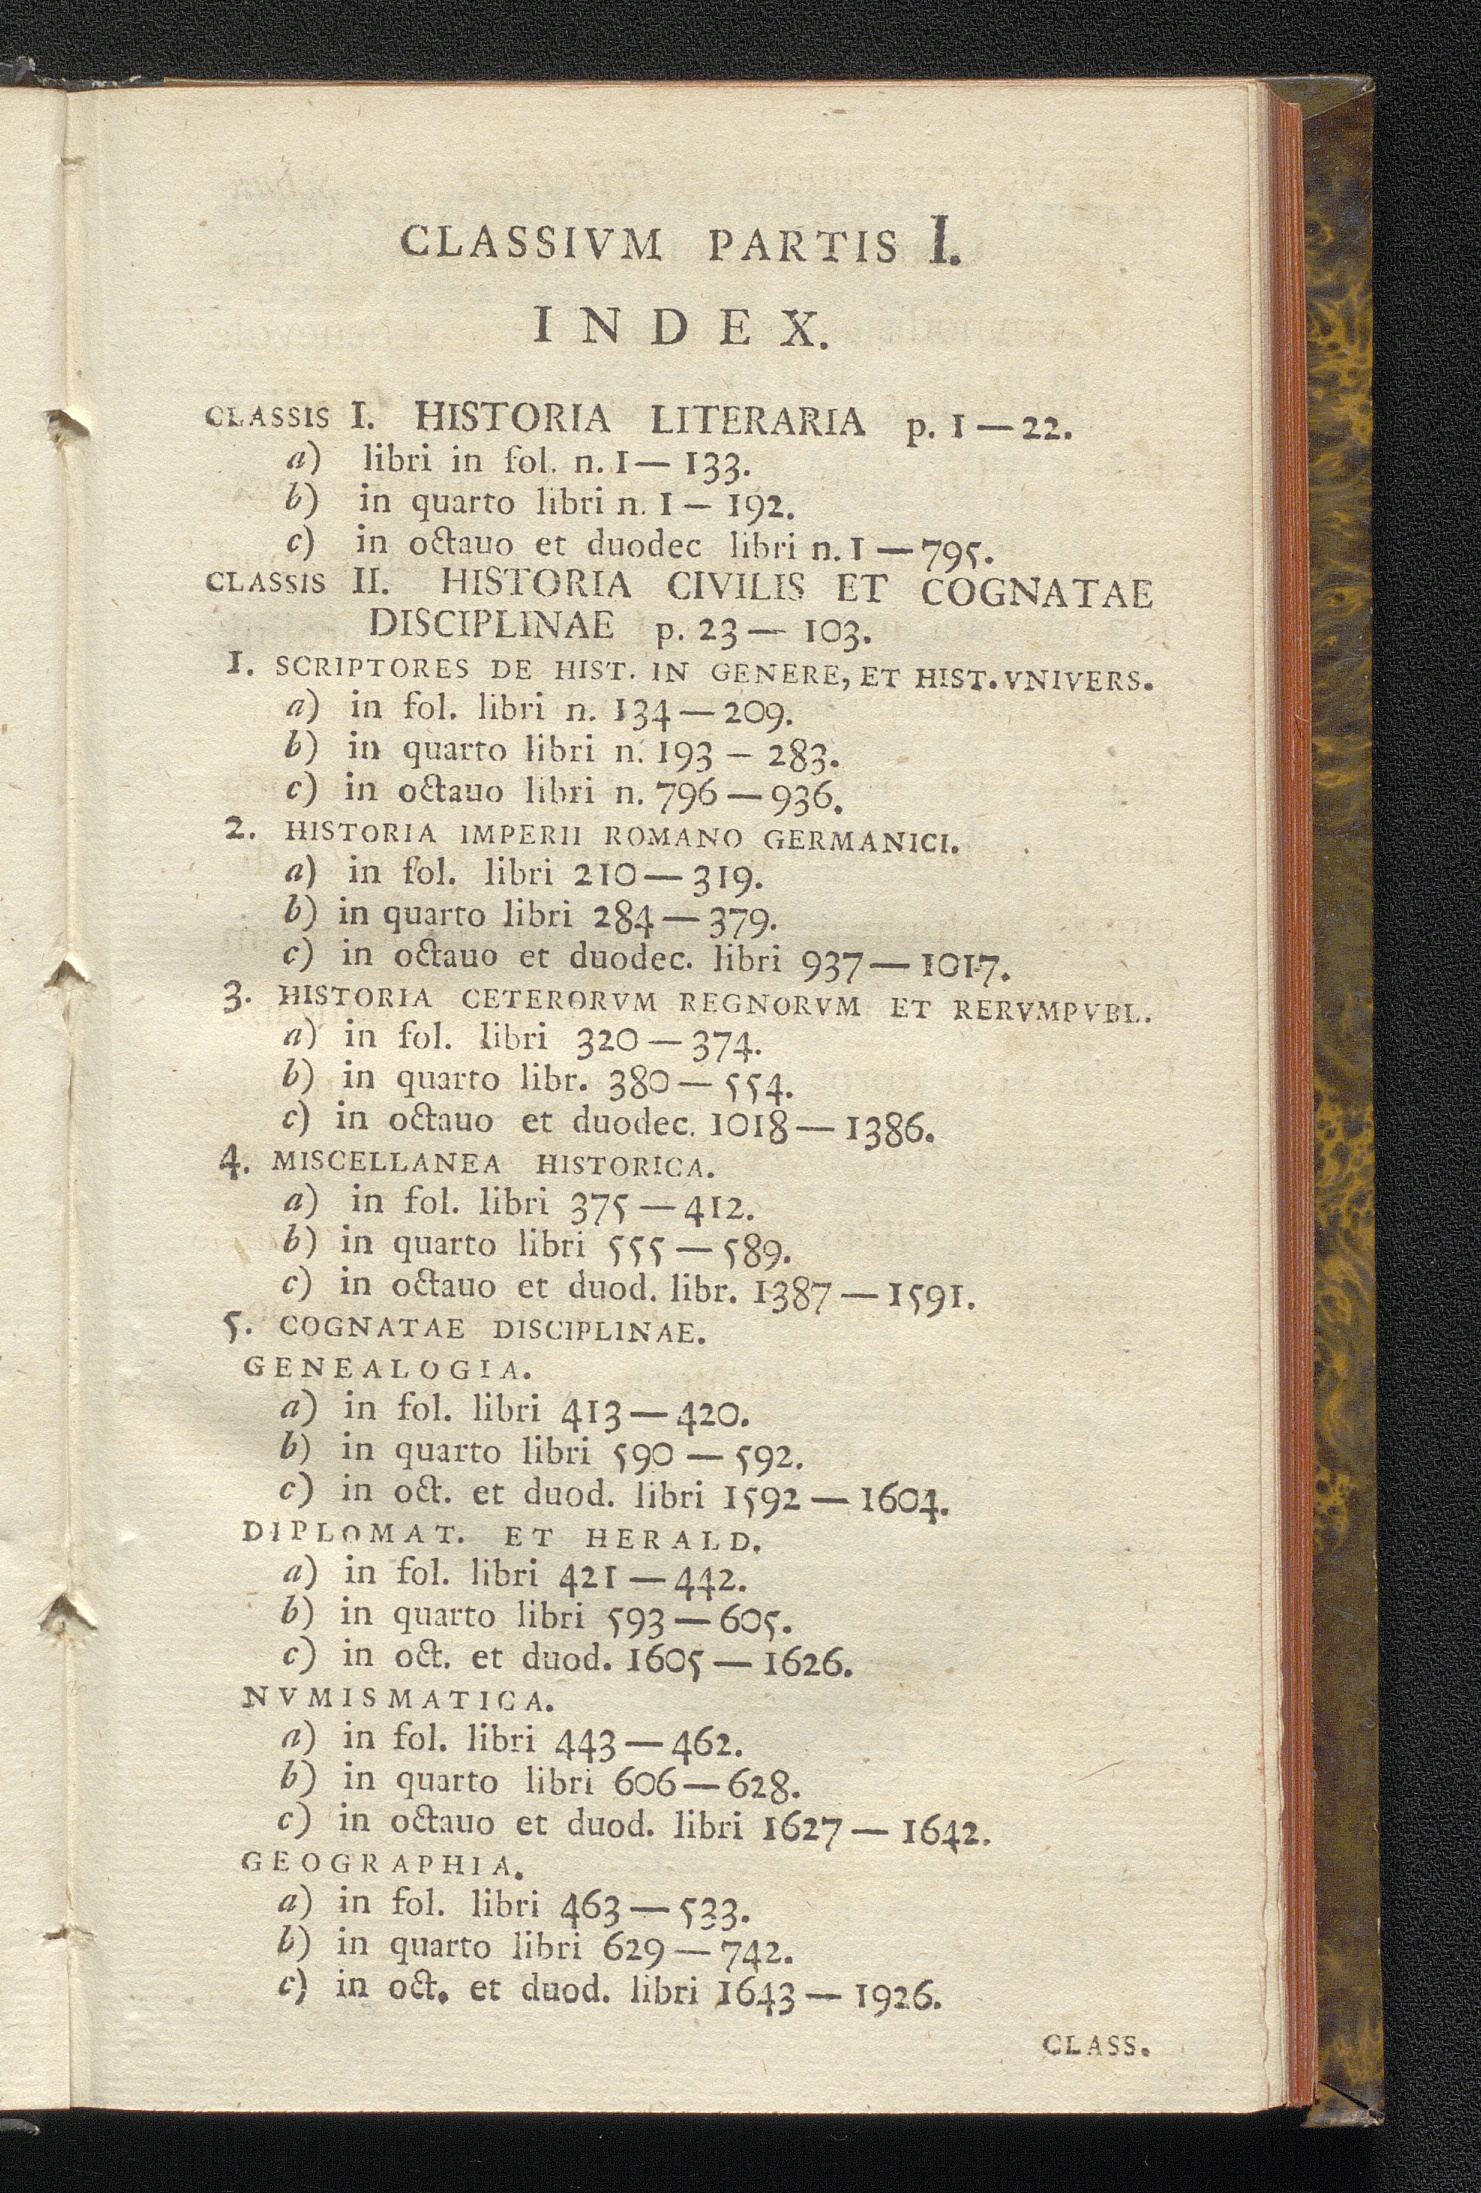 CLASSIVM PARTIS I.
INDEX.
CLASSIS I. HISTORIA LITERARIA p. 1—22.
a) libri in fol. n. 1— 133.
b) in quarto libri n. 1 — 192.
c) in octauo et duodec libri n. 1 — 795.
CLASSIS II. HISTORIA CIVILIS ET COGNATAE
DISCIPLINAE p. 23 — 103.
1. SCRIPTORES DE HIST. IN GENERE, ET HIST. VNIVERS.
a) in fol. libri n. 134 — 209.
b) in quarto libri n. 193 — 283.
c) in octauo libri n. 796 — 936.
2. HISTORIA IMPERII ROMANO GERMANICI.
a) in fol. libri 210 — 319.
b) in quarto libri 284 — 379.
c) in octauo et duodec. libri 937 — 1017.
3. HISTORIA CETERORVM REGNORVM ET RERVMPVBL.
a) in fol. libri 320 — 374.
b) in quarto libr. 380 — 554.
c) in octauo et duodec. 1018 — 1386.
4. MISCELLANEA HISTORICA.
a) in fol. libri 375 — 412.
b) in quarto libri 555 — 589.
c) in octauo et duod. libr. 1387 — 1591.
5. COGNATAE DISCIPLINAE.
GENEALOGIA.
a) in fol. libri 413 — 420.
b) in quarto libri 590 — 592.
c) in oct. et duod. libri 1592 — 1604.
DIPLOMAT. ET HERALD.
a) in fol. libri 421 — 442.
b) in quarto libri 593 — 605.
c) in oct. et duod. 1605 — 1626.
NVMISMATICA.
a) in fol. libri 443 — 462.
b) in quarto libri 606 — 628.
c) in octauo et duod. libri 1627 — 1642.
GEOGRAPHIA.
a) in fol. libri 463 — 533.
b) in quarto libri 629 — 742.
c) in oct. et duod. libri 1643 — 1926.
CLASS.